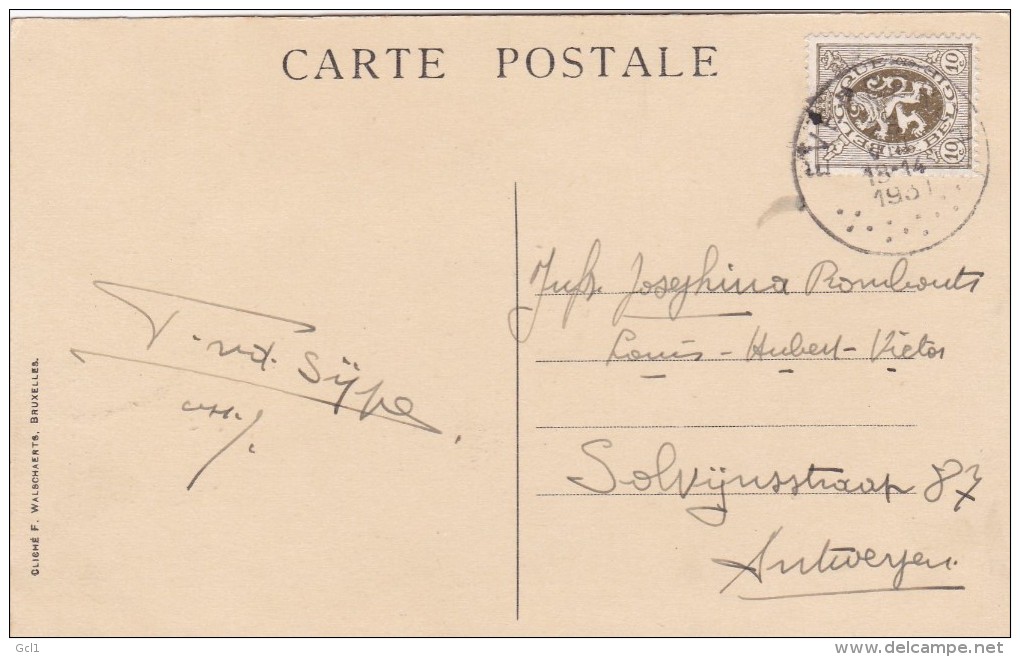 CARTE POSTALE
10 10
BELGIQUE BELGIE
13-14
1931
Jufr. Josephina Rombouts
Louis - Hubert - Victor
Solvijnsstraat 87
Antwerpen
T. vd. Sijpe
CLICHÉ F. WALSCHAERTS, BRUXELLES.
Gcl1
delcampe.net